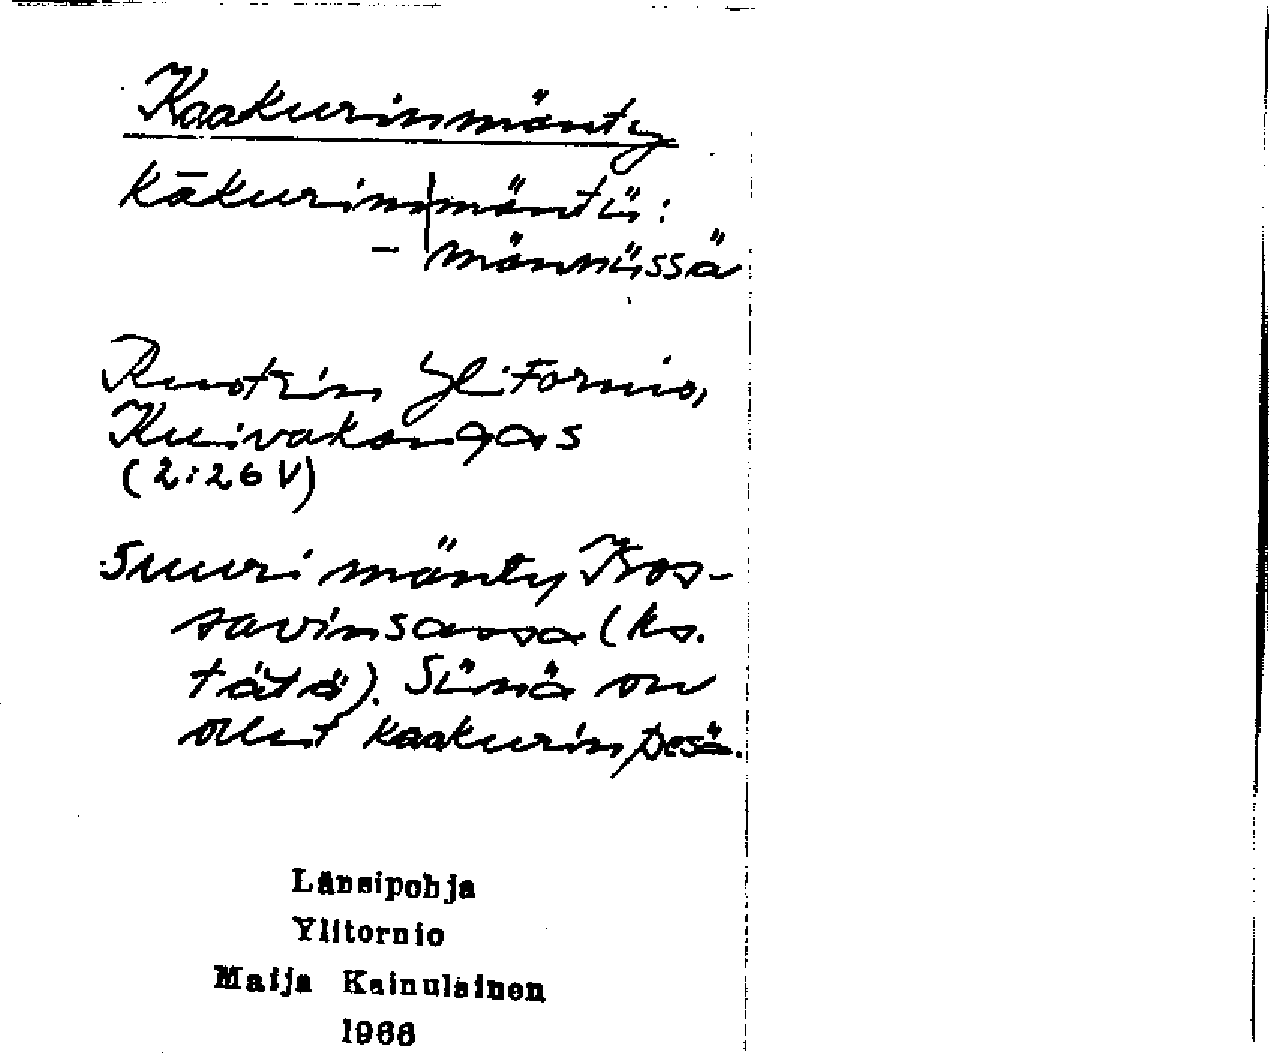 Kaakurinmänty
kākurinmäntü:
- männüssä
Ruotsin Ylitornio,
Kuivakangas
(2:26 V)
Suuri mänty Isos-
savinsaassa (ks.
tätä). Siinä on
ollut kaakurin pesä.
Länsipohja
Ylitornio
Maija Kainulainen
1966